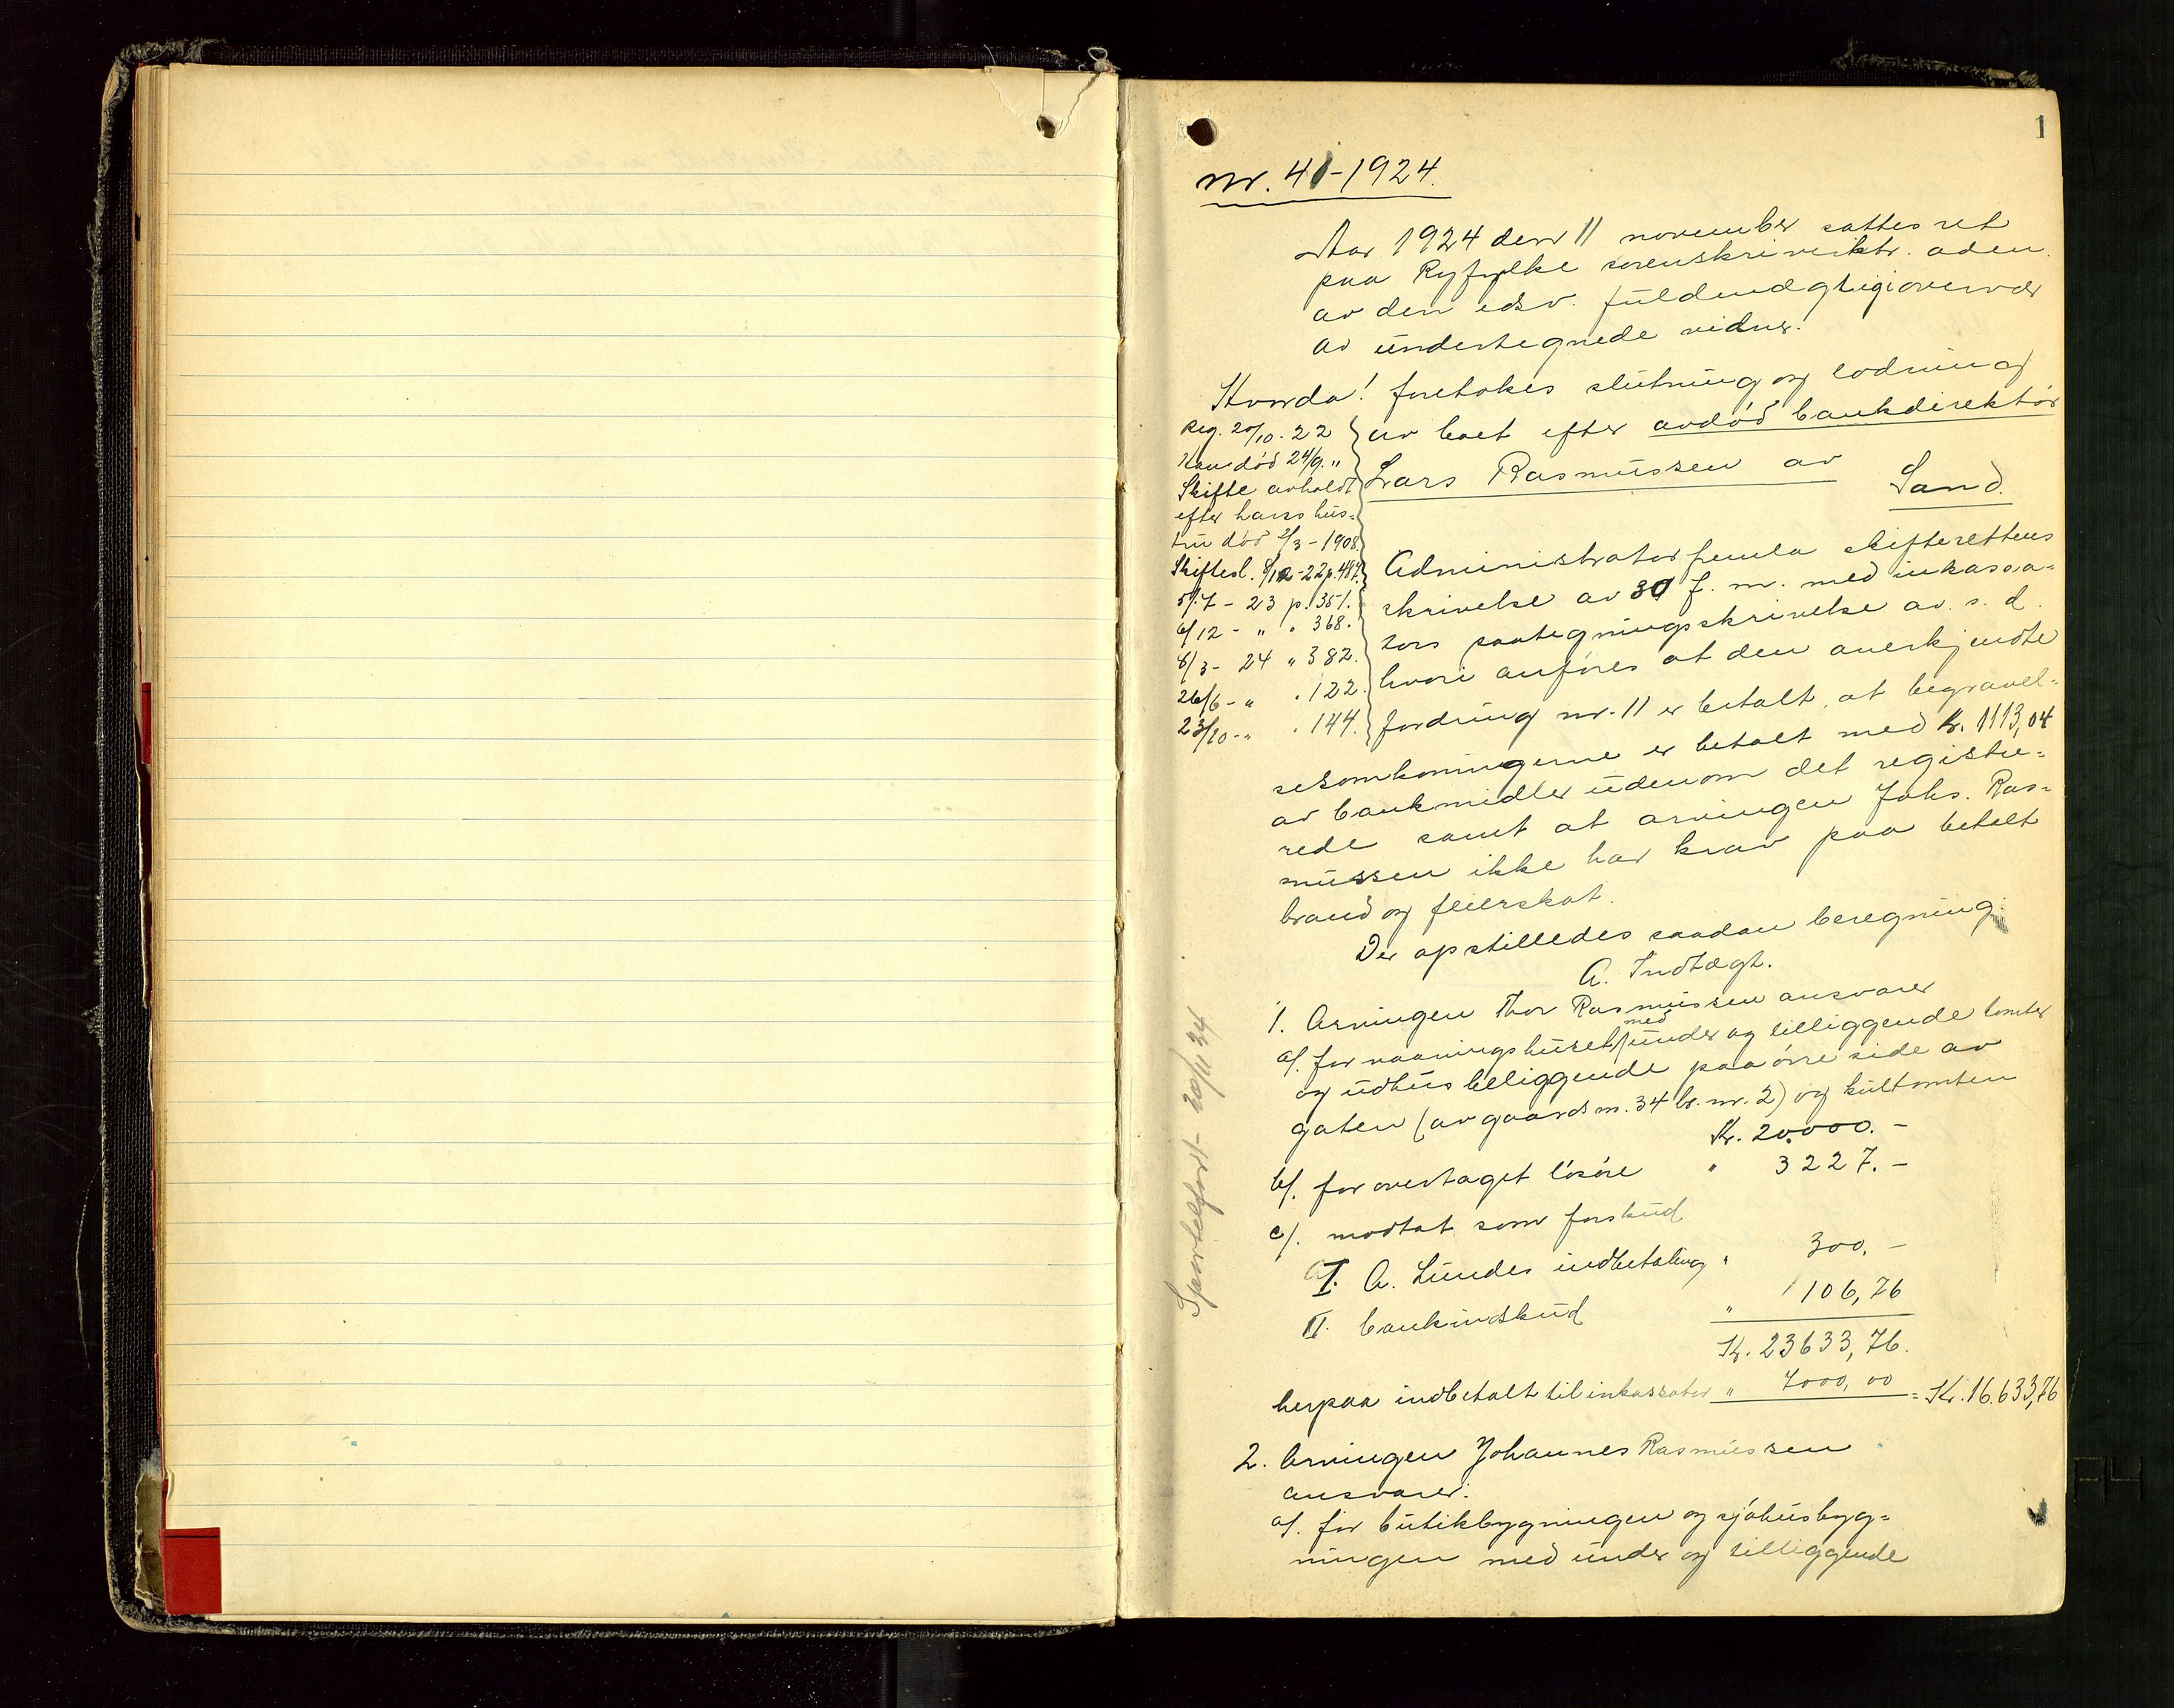 1
nr. 41-1924.
Aar 1924 den 11 november sattes ret
paa Ryfylke sorenskriverktr. aden
av den edsv. fuldmægtig i overvær
av undertegnede vidner.
Hvorda! foretokes slutning og lodning
av boet efter avdød bankdirektør
Lars Rasmussen av
Sand.
Reg. 20/10. 22
Han død 24/9. "
Skifte avholdt
efter hans hus-
tru død 2/3-1908.
Skiftesl. 8/12-22 p. 487.
5/7 - 23 p. 351.
6/12 - " " 368.
8/3 - 24 " 382.
26/6 - " " 122.
23/10 - " " 144.
Administrator fremla skifterettens
skrivelse av 30 f. m. med inkassa-
tors paategningsskrivelse av s. d.
hvori anføres at den anerkjendte
fordring nr. 11 er betalt, at begravel-
sesomkoningerne er betalt med kr. 1113,04
av bankmidler udenom det registre-
rede samt at arvingen Johs. Ras-
mussen ikke har krav paa betalt
brand og feierskat.
Der opstilledes saadan beregning:
A. Indtægt.
1. Arvingen Thor Rasmussen ansvarer
a/. for vaaningshuset med under og tilliggende tomter
og udhus beliggende paa øvre side av
gaten (av gaards nr. 34 br. nr. 2) og hultomten
Kr. 20.000. -
b/. for overtaget løsøre " 3227. -
c/. mottat som forskud
I. A. Lundes indbetaling " 300. -
II. bankindskud " 106,76
Kr. 23633,76.
herpaa indbetalt til inkassator " 7000,00 = Kr. 16.633,76
2. Arvingen Johannes Rasmussen
ansvarer:
a/. for butikbygningen og sjøhusbyg-
ningen med under og tilliggende
Sportelført 20/11 34